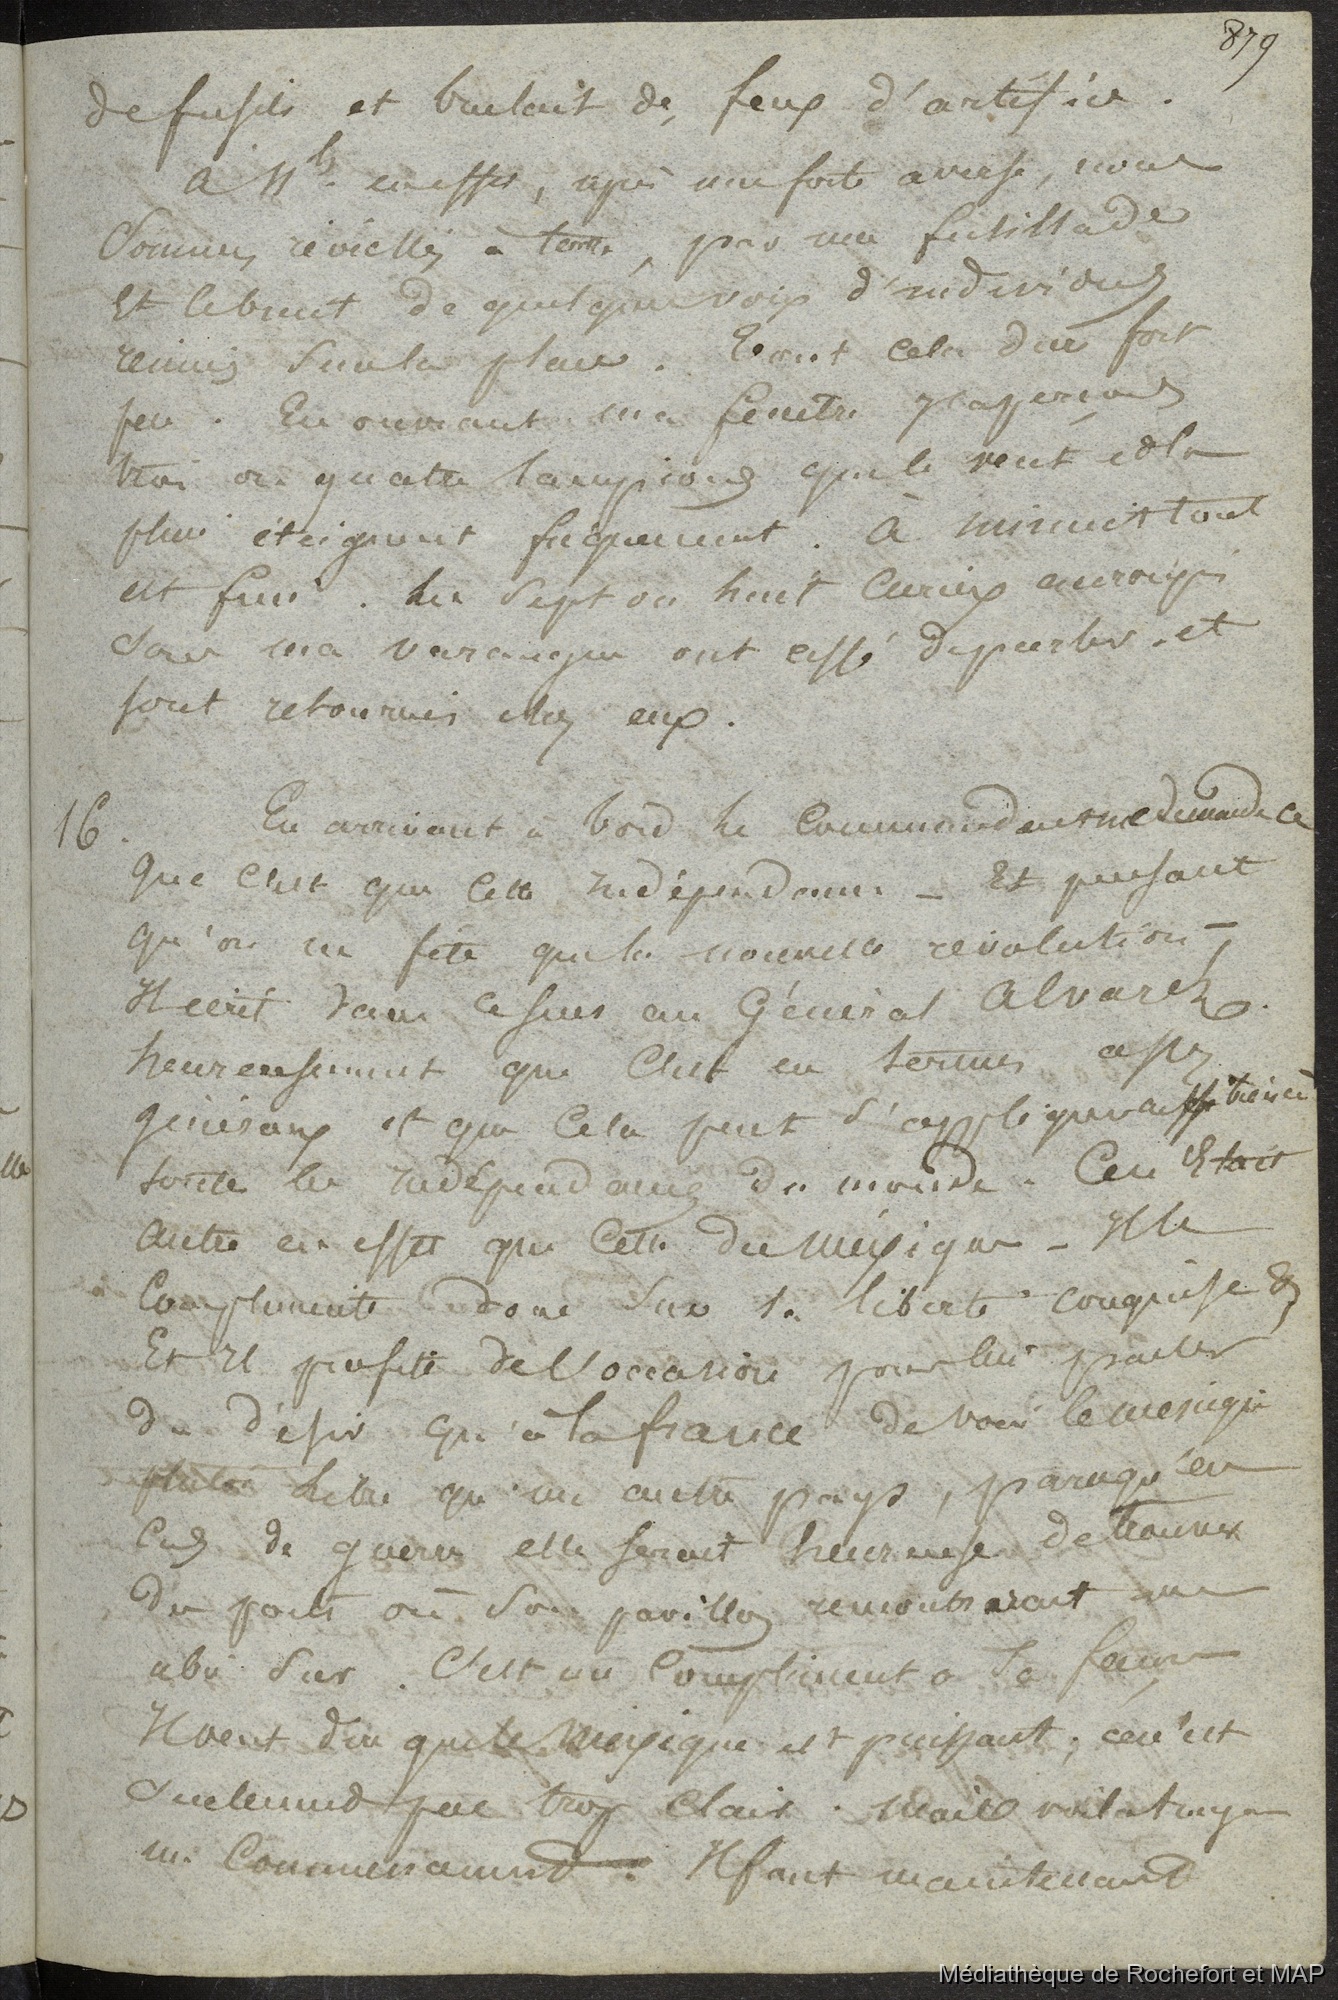 879
de fusils et brulait des feux d'artifice.
à 11h. en effet, après une forte averse, nous
sommes réveillés à terre, par une fusillade
et le bruit de quelques voix d'individus
réunis sur la place. Tout cela dure fort
peu. En ouvrant ma fenêtre j'apercois
trois ou quatre lampions que le vent et la
pluie éteignent fréquemment. à minuit tout
est fini. Les sept ou huit curieux accroupis
sous ma varangue ont cessé de parler et
sont retournés chez eux.
16. En arrivant à bord le Commandant me demande ce
que c'est que cette indépendance _ Et pensant
qu'on ne fête que la nouvelle révolution,
Il écrit dans ce sens au Général Alvarez.
heureusement que c'est en termes assez
généraux et que cela peut s'appliquer aussi bien à
toutes les indépendances du monde. Ce n'était
autre en effet que celle du Méxique _ Il le
complimente donc sur la liberté conquise &
Et il profite de l'occasion pour lui parler
du désir qu'a la france de voir le mexique
plutôt libre qu'un autre pays, parcequ'en
cas de guerre elle serait heureuse de trouver
des ports où son pavillon rencontrerait un
abri sur. C'est un compliment à sa façon
Il veut dire que le Méxique est puissant; ce n'est
seulement pas trop clair. Mais voilà toujours
un commencement. Il faut maintenant
Médiathèque de Rochefort et MAP